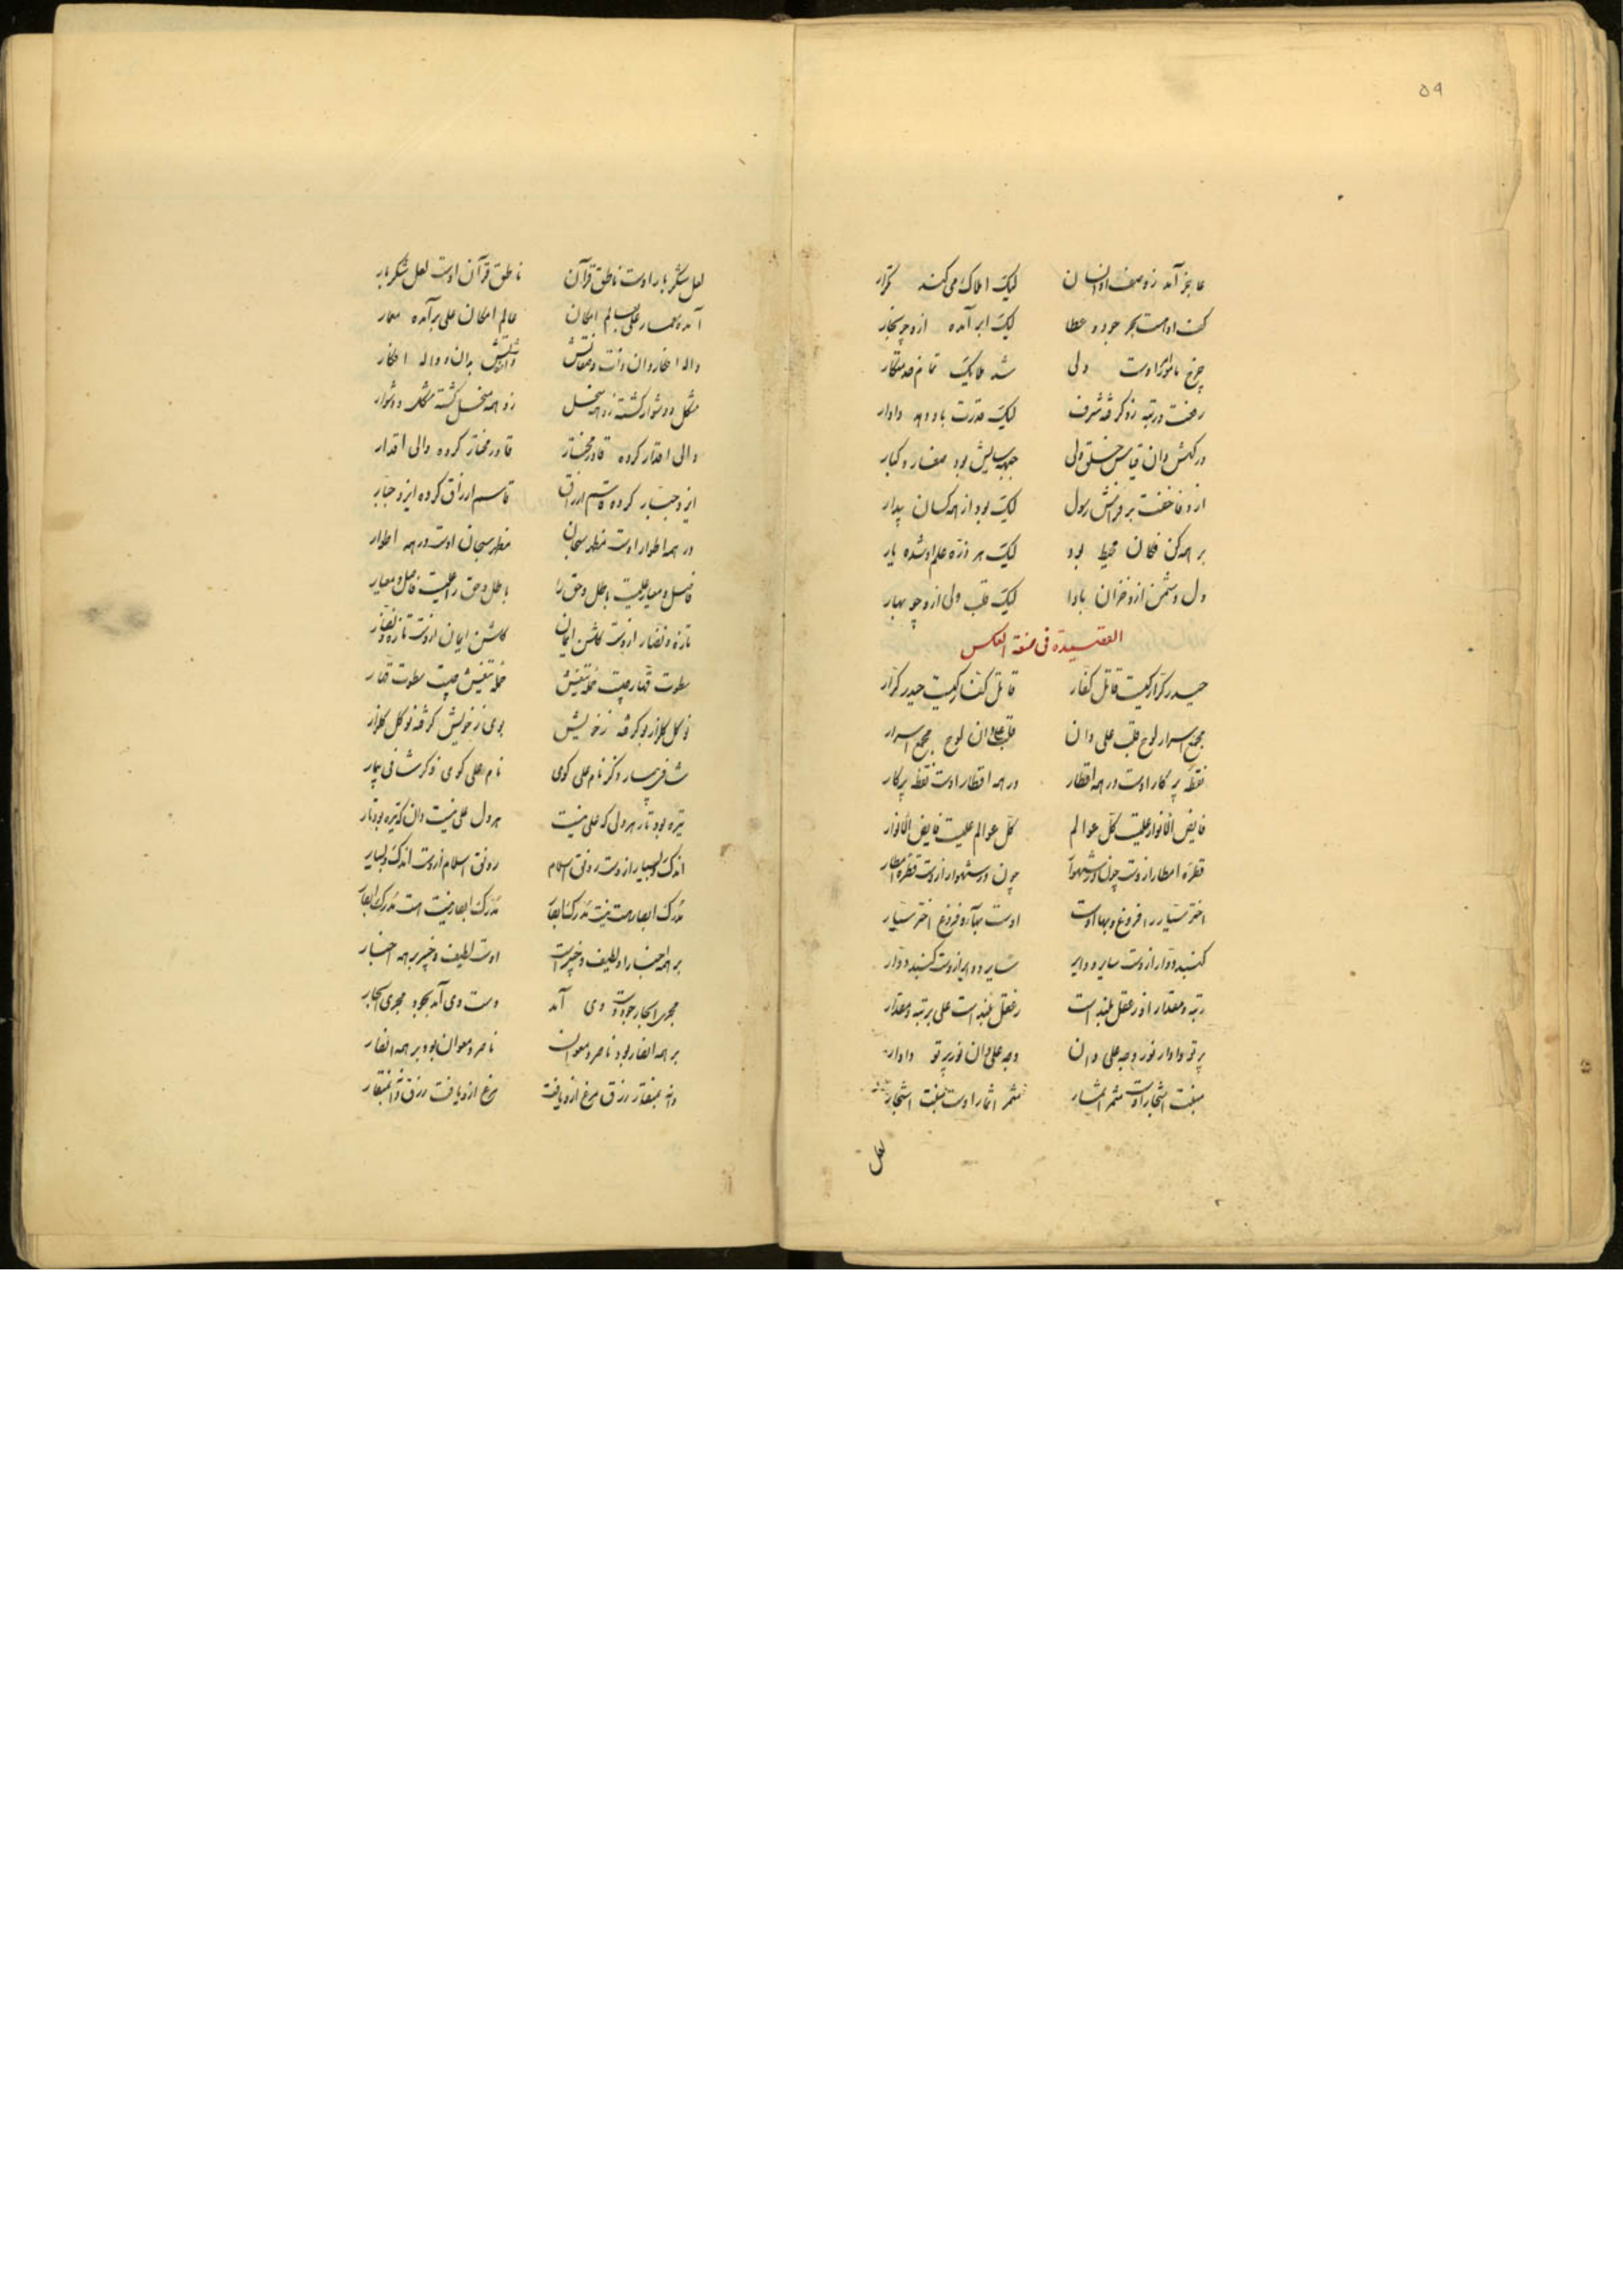 ۵۹
عاجز آمد ز وصف او انسان لیک املاک می کند تکرار
کف او هست بحر جود و عطا لیک ابر آمده ازو چو بخار
چرخ مامور اوست ولی شد ملایک تمام خدمتکار
رفعت و رتبه زو گرفته شرف لیک قدرت باو دهد دادار
لیک بود از همه کسان بیدار
بر همه کن فکان محیط بود لیک هر ذره علم او شده یار
دل دشمن ازو خزان بادا لیک قلب ولی ازو چو بهار
القصیده فی صنعة العکس
حیدر کرار کیست قاتل کفار قاتل کفار کیست حیدر کرار
مجمع اسرار لوح قلب علی دان قلب علی دان لوح مجمع اسرار
نقطه پرکار اوست در همه اقطار در همه اقطار اوست نقطه پرکار
فایض الانوار علیست کل عوالم کل عوالم علیست فایض الانوار
قطره امطار ازوست چون در شهوار چون در شهوار ازوست قطره امطار
اختر سیار را فروغ و بها اوست اوست بها و فروغ اختر سیار
گنبد دوار ازوست سایر و دایر سایر و دایر ازوست گنبد دوار
رتبه و مقدار او ز عقل بلند است ز عقل بلند است علی برتبه و مقدار
پرتو دادار نور وجه علی دان وجه علی دان نور پرتو دادار
منبت اشجار اوست مثمر اثمار مثمر اثمار اوست منبت اشجار
لعل
لعل شکر بار اوست ناطق قرآن ناطق قرآن اوست لعل شکر بار
آمده معمار علی بعالم امکان عالم امکان علی برآمده معمار
مشکل و دشوار گشته زو همه منحل زو همه منحل گشته مشکل و دشوار
والی اقتدار کرده قادر مختار قادر مختار کرده والی اقتدار
ایزد جبار کرده قاسم ارزاق قاسم ارزاق کرده ایزد جبار
در همه اطوار اوست مظهر سبحان مظهر سبحان اوست در همه اطوار
فاصل و معیار علیست باطل و حق را باطل و حق را علیست فاصل و معیار
تازه و نضار ازوست گلشن ایمان گلشن ایمان ازوست تازه و نضار
سطوت قهار چیست حمله تیغش حمله تیغش چیست سطوت قهار
نو گل گلزار بو گرفته ز خویش بوی ز خویش گرفته نو گل گلزار
شافی بیمار ذکر نام علی گوی نام علی گوی ذکر شافی بیمار
تیره بود تار هر دلی که علی نیست هر دل علی نیست دان که تیره بود تار
اندک و بسیار ازوست رونق اسلام رونق اسلام ازوست اندک و بسیار
مدرک ابصار هست نیست مدرک ابصار مدرک ابصار نیست هست مدرک ابصار
بر همه اخبار او لطیف و خبیر است اوست لطیف و خبیر بر همه اخبار
مجری ابحار جود دست وی آمد دست وی آمد بجود مجری ابحار
بر همه انصار بود ناصر و معوان ناصر و معوان بود بر همه انصار
دانه بمنقار رزق مرغ ازو یافت مرغ ازو یافت رزق دانه بمنقار